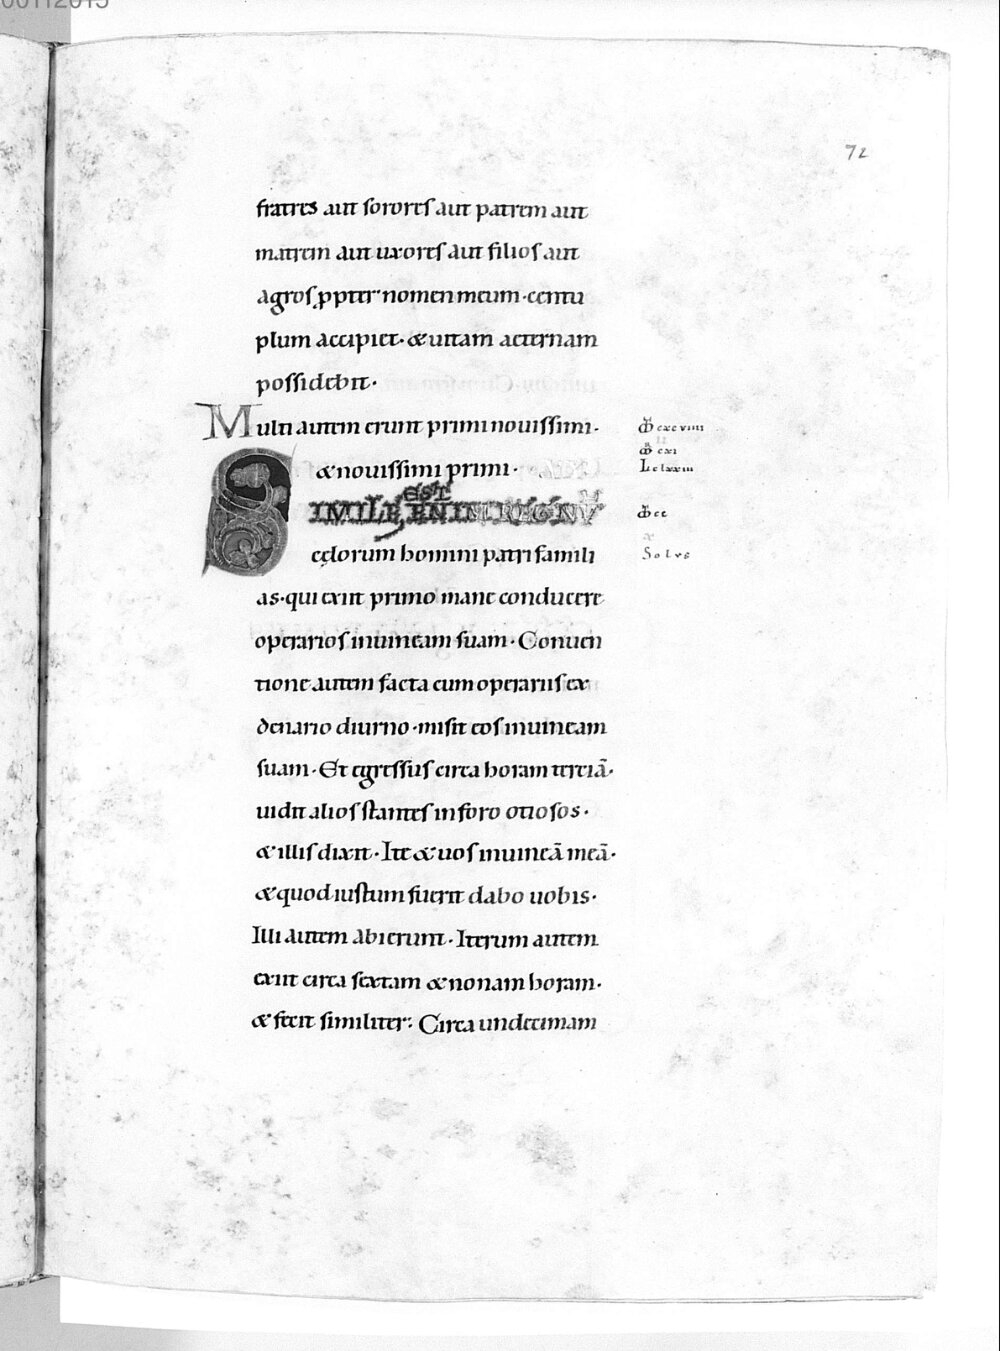 00112015
72
fratres aut sorores aut patrem aut
matrem aut uxores aut filios aut
agros ꝓpter nomen meum · centu
plum accipiet · & uitam aeternam
possidebit ·
Multi autem erunt primi nouissimi ·
& nouissimi primi ·
EST
SIMILE ENIM REGNŪ
cęlorum homini patri famili
as · qui exiit primo mane conducere
operarios in uineam suam · Conuen
tione autem facta cum operariis ex
denario diurno · misit eos in uineam
suam · Et egressus circa horam terciā ·
uidit alios stantes in foro otiosos ·
& illis dixit · Ite & uos in uineā meā ·
& quod iustum fuerit dabo uobis ·
Illi autem abierunt · Iterum autem
exiit circa sextam & nonam horam ·
& fecit similiter : Circa undecimam
cxcviiii
cxi
Lc lxxiii
cc
x
Solus